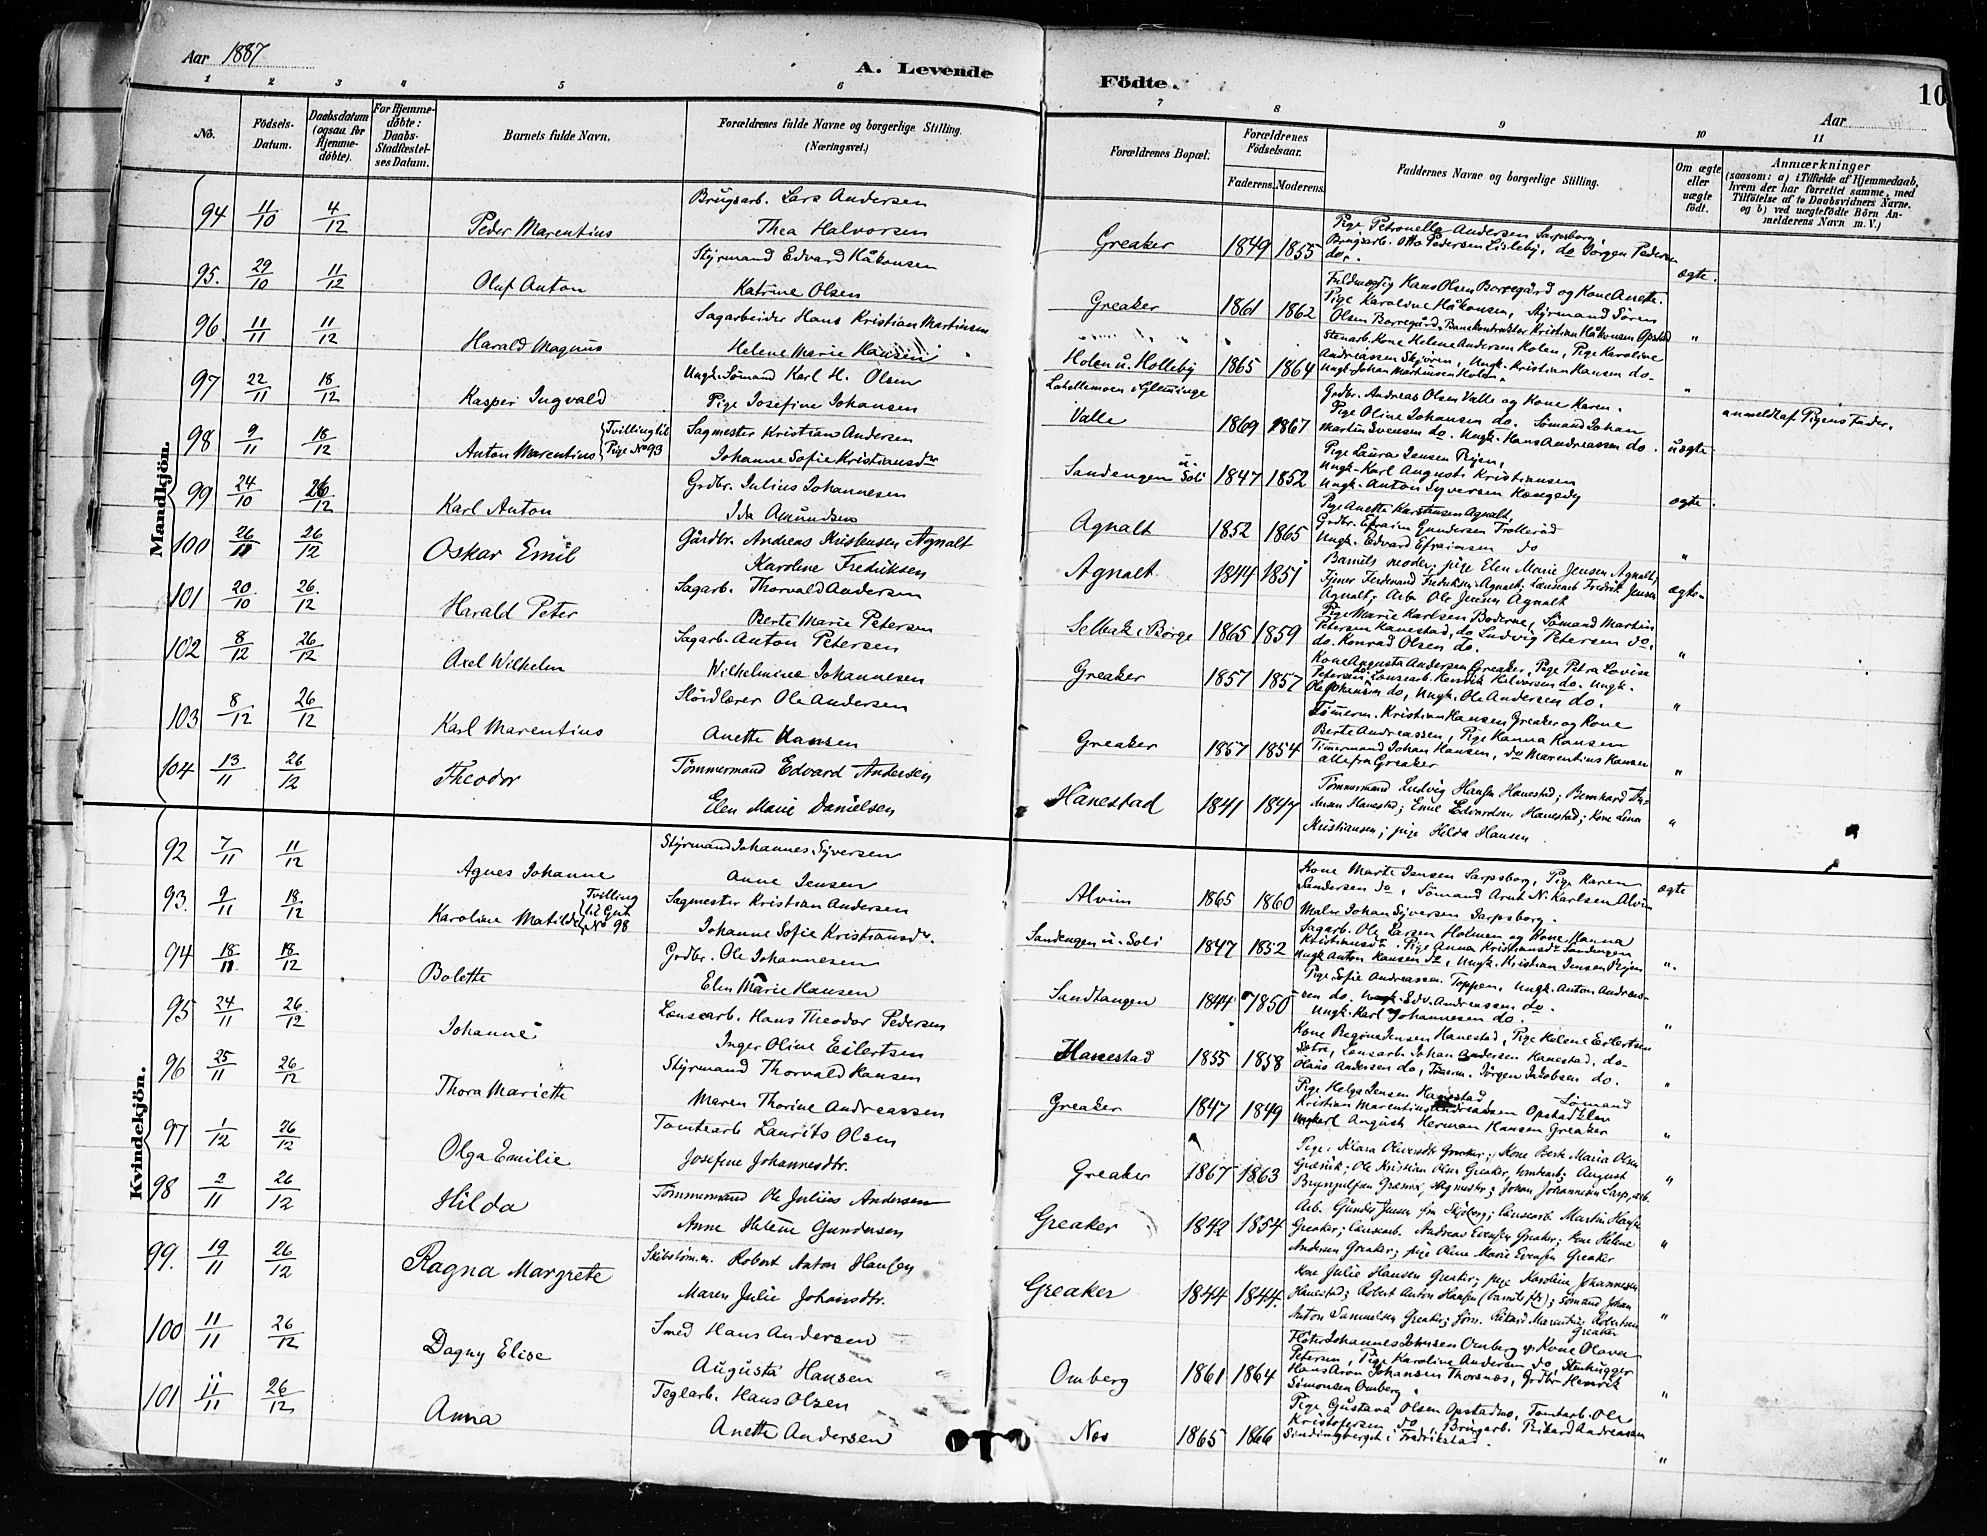 Aar 1887
A. Levende Födte.
10
Aar
1 2 3 4 5 6 7 8 9 10 11
No.
Födsels-Datum.
Daabsdatum (ogsaa for Hjemmedöbte).
For Hjemmedöbte: Daabs-Stadfæstelses Datum.
Barnets fulde Navn.
Forældrenes fulde Navne og borgerlige Stilling. (Næringsvei.)
Forældrenes Bopæl.
Forældrenes Födselsaar.
Faderens. Moderens.
Faddernes Navne og borgerlige Stilling.
Om ægte eller uægte födt.
Anmærkninger (saasom: a) i Tilfælde af Hjemmedaab, hvem der har forrettet samme, med Tilföielse af to Daabsvidners Navne. og b) ved uægtefödte Börn Anmelderens Navn m. V.)
Mandkjön.
94 11/10 4/12 Peder Marentius
Brugsarb. Lars Andersen
Thea Halvorsen
Greaker 1849 1855
Pige Petronella Andersen Sarpsborg,
Brugsarb. Otto Pedersen Lisleby, do Jörgen Pedersen
do.
ægte.
95. 29/10 11/12 Oluf Anton
Styrmand Edvard Håkonsen
Katrine Olsen
Greaker 1861 1862
Fuldmægtig Hans Olsen Borregård og Kone Anette.
Pige Karoline Håkonsen, Styrmand Sören
Olsen Borregård, Banekontraktör Kristian Håkonsen Opstad
"
96. 11/11 11/12 Harald Magnus
Sagarbeider Hans Kristian Martinsen
Helene Marie Hansen
Holen u. Holleby 1865 1864
Stenarb. Kone Helene Andersen Holen, Pige Karoline
Andreassen Skjören, Ungk. Kristian Hansen do.
Ungk. Johan Martinsen Holen.
"
97 22/11 18/12 Kasper Ingvald
Ungk. Sömand Karl H. Olsen
Pige Josefine Johansen
Valle 1869 1867
Grdbr. Andreas Olsen Valle og Kone Karen.
Pige Oline Johansen do. Sömand Johan
Martin Svensen do. Ungk. Hans Andreassen do.
uægte
anmeldt af Pigens Fader.
98 9/11 18/12 Anton Marentius {Tvilling til Pige No 93
Sagmester Kristian Andersen
Johanne Sofie Kristiansdtr
Sandengen u. Soli 1847 1852
Pige Laura Jensen Ryen,
Ungk. Karl August Kristiansen
Ungk. Anton Syversen Kongedy
ægte.
99 24/10 26/12 Karl Anton
Grdbr. Julius Johannesen
Ida Amundsen
Agnalt 1852 1865
Pige Anette Karstensen Agnalt
Grdbr. Efraim Gundersen Trolleröd
Ungk. Edvard Efraimsen do
"
100 26/11 26/12 Oskar Emil
Gårdbr. Andreas Kristensen Agnalt
Karoline Fredriksen
Agnalt 1844 1851
Barnets moder; pige Elen Marie Jensen Agnalt,
Tjener Ferdinand Fredriksen Agnalt; Lænsearb Fredrik Jensen
Agnalt; Arb. Ole Jensen Agnalt
ægte.
101 20/10 26/12 Harald Peter
Sagarb. Thorvald Andersen
Berte Marie Petersen
Selbak i Borge 1865 1859
Pige Marie Karlsen Boderne, Sömand Martin
Petersen Hanestad, do Ludvig Petersen do.
do. Konrad Olsen do.
"
102 8/12 26/12 Axel Wilhelm
Sagarb. Anton Petersen
Wilhelmine Johannesen
Greaker 1857 1857
Kone Augusta Andersen Greaker, Pige Petra Lovise
Petersen do, Lænsearb. Henrik Halvorsen do. Ungk.
Ole Johansen do, Ungk. Ole Andersen do.
"
103 8/12 26/12 Karl Marentius
Slöidlærer Ole Andersen
Anette Hansen
Greaker 1857 1854
Tömerm. Kristian Hansen Greaker og Kone
Berte Andreassen, Pige Hanna Hansen
Timermand Johan Hansen, do Marentius Hansen
alle fra Greaker
"
104 13/11 26/12 Theodor
Tömmermand Edvard Andersen
Elen Marie Danielsen
Hanestad 1841 1847
Tömmermand Ludvig Hansen Hanestad; Bernhard
Hanestad; Emil Edvardsen Hanestad; Kone Lina
Kristiansen; pige Hilda Hansen
"
Kvindekjön.
92 7/11 11/12 Agnes Johanne
Styrmand Johannes Syversen
Anne Jensen
Alvim 1865 1860
Kone Marte Jensen Sarpsborg, Pige Karen
Sandersen do, Sömand Arnt N. Karlsen Alvim
Maler Johan Syversen Sarpsborg.
ægte
93. 9/11 18/12 Karoline Matilde {Tvilling til Gut No 98
Sagmester Kristian Andersen
Johanne Sofie Kristiansdtr.
Sandengen u. Soli 1847 1852
Sagarb. Ole Larsen Holmen og Kone Hanna
Kristiansdtr. Pige Anna Kristiansdtr Sandengen
Ungk Anton Hansen do, Ungk. Kristian Jensen Ryen
".
94 18/11 18/12 Bolette
Grdbr. Ole Johannesen
Elen Marie Hansen
Sandtangen 1844 1850
Pige Sofie Andreassen Toppen, Ungk. Anton Andreassen
do. Ungk. Edv. Andreassen do.
Ungk. Karl Johannesen do.
"
95 24/11 26/12 Johanne
Lænsearb. Hans Theodor Pedersen
Inger Oline Eilertsen
Hanestad 1855 1858
Kone Regine Jensen Hanestad, Pige Helene Eilertsen
Lænsarb. Johan Andersen Hanestad, do.
Olaus Andersen do, Tömerm. Jörgen Jakobsen do.
"
96 25/11 26/12 Thora Mariette
Styrmand Thorvald Hansen
Maren Thorine Andreassen
Greaker 1847 1849
Pige Helga Jensen Hanestad, Sömand
Kristian Marentius Andreassen Opstad
Ungkarl August Herman Hansen Greaker
"
97 1/12 26/12 Olga Emilie
Tomtearb Laurits Olsen
Josefine Johannesdtr.
Greaker 1867 1863
Pige: Klara Olivesdtr Greaker; Kone Berte Maria Olsen
Græsvik; Ole Kristian Olsen Greaker, tomtearb; August
Brynjulfsen Græsvik, Sagmester; Johan Johannesen Sarp, arb.
"
98 2/11 26/12 Hilda
Tömmermand Ole Julius Andersen
Anne Helene Gundersen
Greaker 1842 1854
Arb. Gunder Jensen fra Skjeberg; lænsearb Martin Hansen
Greaker; lænsearb. Andreas Evensen Greaker; kone Helene
Andersen Greaker; pige Oline Marie Evensen Greaker
"
99. 19/11 26/12 Ragna Margrete
Skibstöm.m. Robert Anton Hansen
Maren Julie Johansdtr.
Greaker 1844 1844.
Kone Julie Hansen Greaker; pige Karoline Johannesen
Hanestad; Robert Anton Hansen (barnets f.); Sömand Johan
Anton Samuelsen Greaker; Töm. Rikard Marentius Robertsen
Greaker
"
100 11/11 26/12 Dagny Elise
Smed Hans Andersen
Augusta Hansen
Omberg 1861 1864
Flöter Johannes Johnsen Omberg og Kone Olava
Petersen, Pige Karoline Andersen do, Stenhugger
Hans Aron Johansen Thorsnæs, Grdbr. Henrik
Simonsen Omberg.
"
101 11/11 26/12 Anna
Teglarb. Hans Olsen
Anette Andersen
Næs 1865 1866
Pige Gustava Olsen Opstadnæs, Tomtarb. Ole
Kristofersen do, Brugarb. Rikard Andreassen
Sindingberget i Fredrikstad.
"